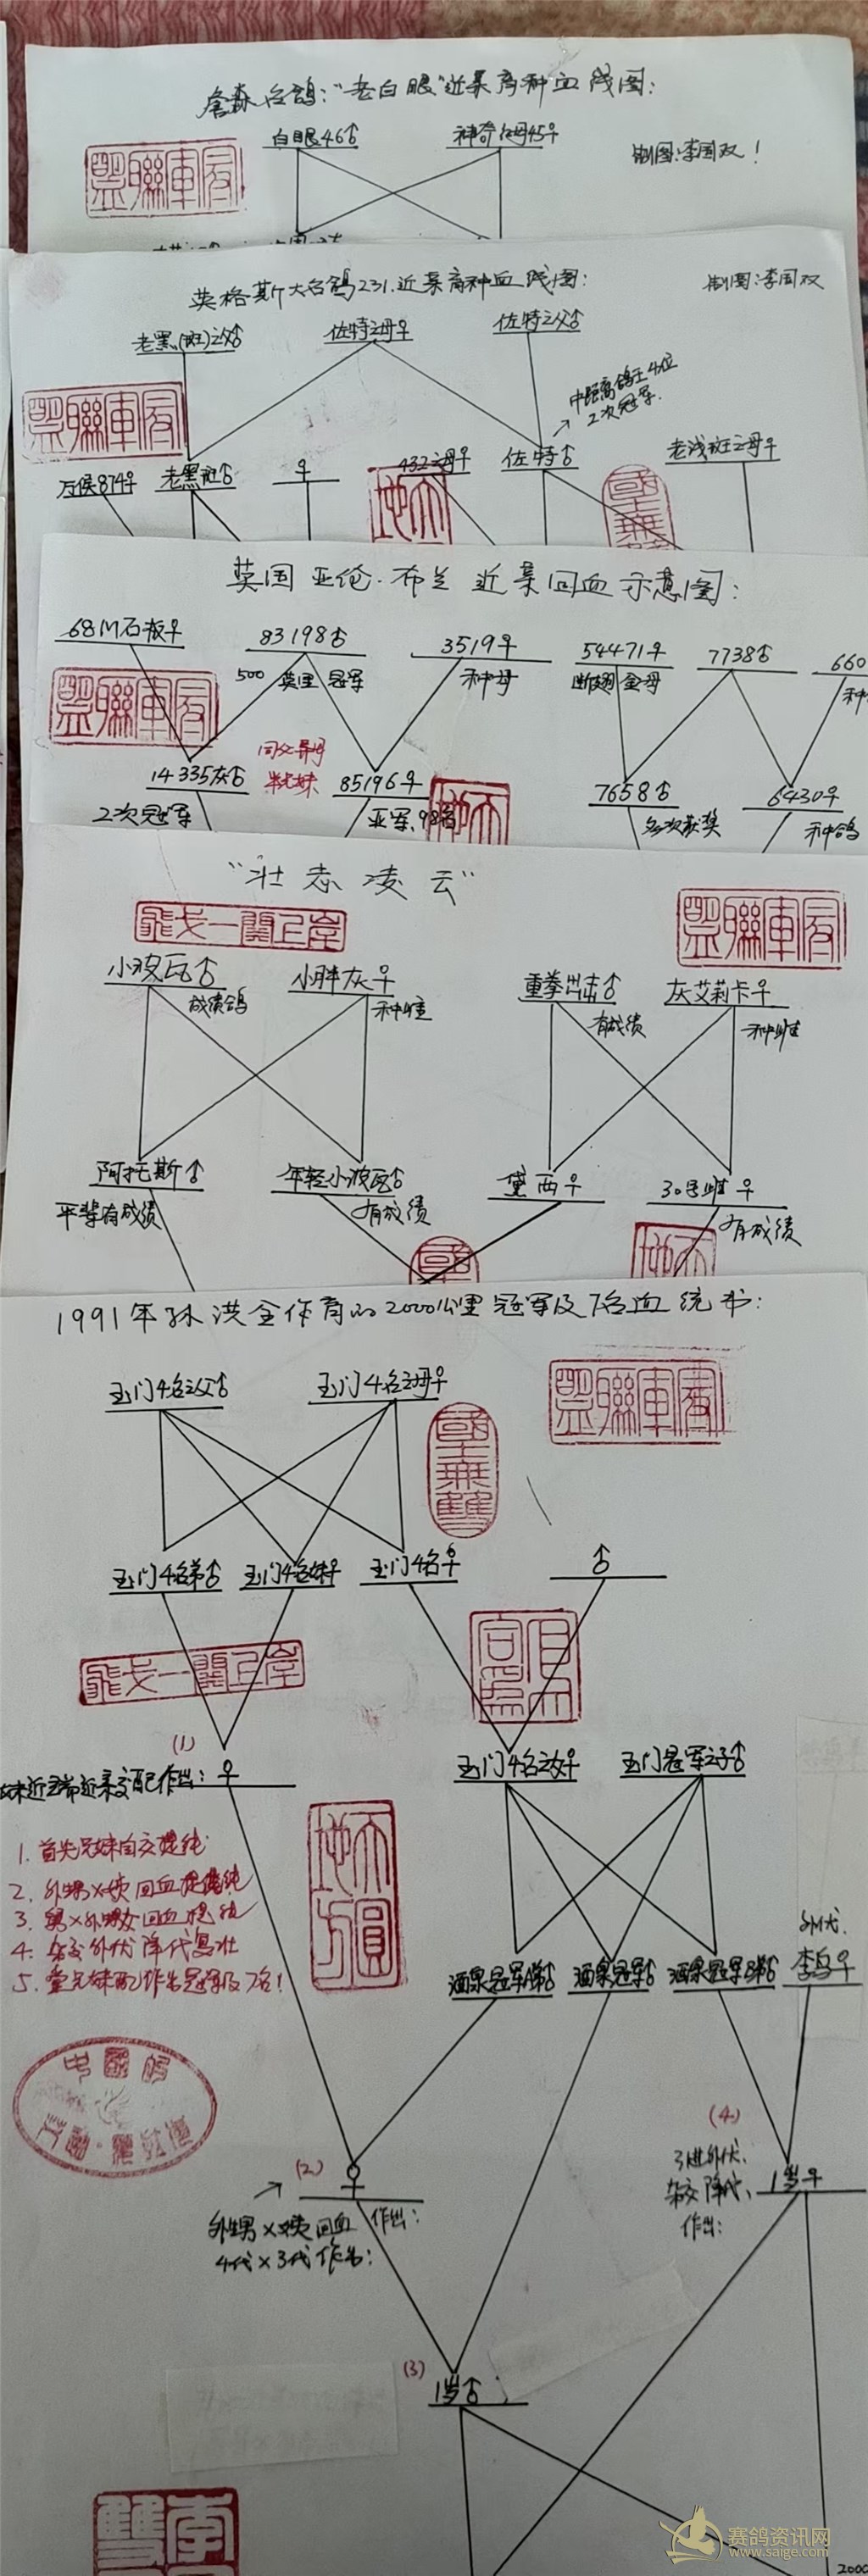 詹森名鸽:“老白眼”近亲育种血线图:
白眼46♂
神奇白母45♀
制图:李国双!
英格斯大名鸽231.近亲育种血线图:
制图:李国双
老黑(斑)之父♂
佐特之母♀
佐特之父♂
中距离鸽王4位
2次冠军.
万侯874♀
老黑斑♂
♀
432之母♀
佐特♂
老浅斑之母♀
英国亚伦·布兰近亲回血示意图:
68M石板♀
83198♂
3519♀
54471♀
7738♂
660
500 英里 冠军
种母
断翅 金母
种
同父异母
半兄妹
14335灰♂
85196♀
7658♂
6430♀
2次冠军
亚军、98名
多次获奖
种鸽
“壮志凌云”
小波瓦♂
小胖灰♀
重拳出击♂
灰艾莉卡♀
成绩鸽
种雌
有成绩
种雌
阿托斯♂
年轻小波瓦♂
黛西♀
30号雌♀
平辈有成绩
有成绩
有成绩
1991年孙洪全作育的2000公里冠军及7名血统书:
玉门4名之父♂
玉门4名之母♀
玉门4名弟♂
玉门4名妹♀
玉门4名♀
♂
(1)
妹近亲交配作出:♀
玉门4名之女♀
玉门冠军之子♂
1. 首先兄妹自交提纯
2. 外甥×姨 回血提纯
3. 舅×外甥女回血提纯
4. 杂交外代降代复壮
5. 堂兄妹配作出冠军及7名!
酒泉冠军A弟♂
酒泉冠军♂
酒泉冠军B弟♂
外代.
李鸟♀
(2)
♀
外甥×姨 回血
作出:
4代×3代作出:
(4)
3进外代、
杂交降代、
作出:
1岁♀
(3)
1岁♂
赛鸽资讯网
www.saige.com
200